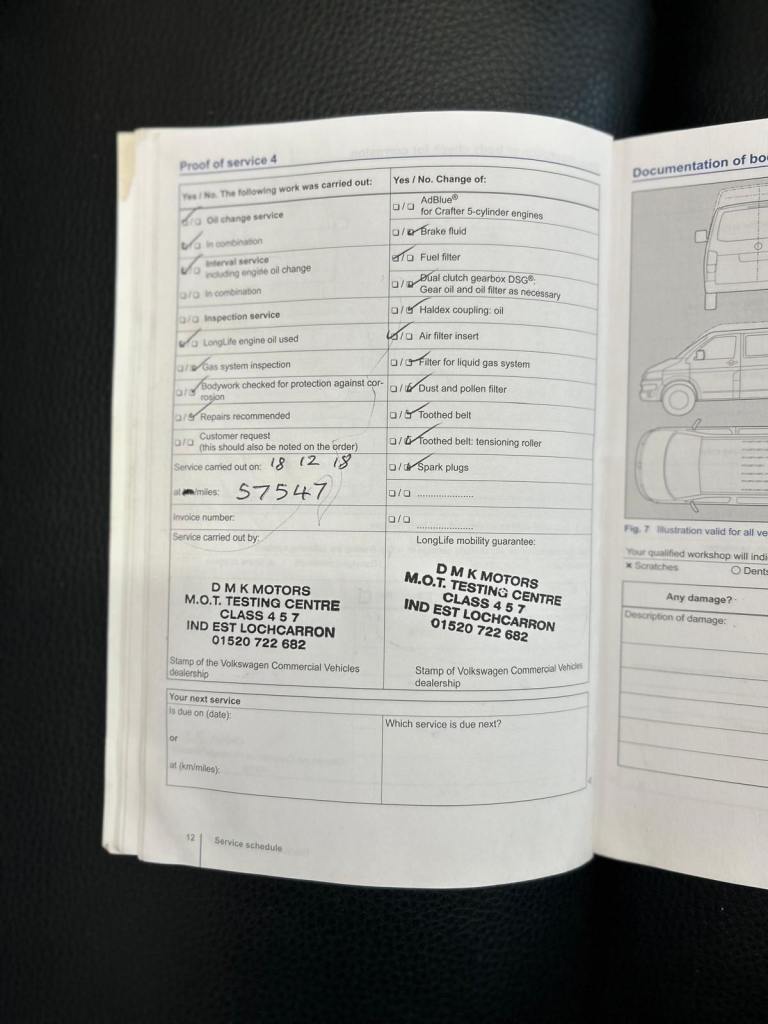 Proof of service 4
Yes / No. The following work was carried out:
☑/☐ Oil change service
☑/☐ In combination
☑/☐ Interval service
including engine oil change
☐/☐ In combination
☐/☐ Inspection service
☑/☐ LongLife engine oil used
☐/☑ Gas system inspection
☐/☑ Bodywork checked for protection against cor-
rosion
☐/☑ Repairs recommended
☐/☐ Customer request
(this should also be noted on the order)
Service carried out on: 18 12 18
at /miles: 57547
Invoice number:
Service carried out by:
D M K MOTORS
M.O.T. TESTING CENTRE
CLASS 4 5 7
IND EST LOCHCARRON
01520 722 682
Stamp of the Volkswagen Commercial Vehicles
dealership
Yes / No. Change of:
☐/☐ AdBlue®
for Crafter 5-cylinder engines
☐/☑ Brake fluid
☑/☐ Fuel filter
☐/☑ Dual clutch gearbox DSG®:
Gear oil and oil filter as necessary
☐/☑ Haldex coupling: oil
☑/☐ Air filter insert
☐/☑ Filter for liquid gas system
☐/☑ Dust and pollen filter
☐/☑ Toothed belt
☐/☑ Toothed belt: tensioning roller
☐/☑ Spark plugs
☐/☐ ......................
☐/☐ ......................
LongLife mobility guarantee:
D M K MOTORS
M.O.T. TESTING CENTRE
CLASS 4 5 7
IND EST LOCHCARRON
01520 722 682
Stamp of Volkswagen Commercial Vehicles
dealership
Your next service
Is due on (date):
or
at (km/miles):
Which service is due next?
12 Service schedule
Documentation of bo
Fig. 7 Illustration valid for all ve
Your qualified workshop will indi
× Scratches ○ Dents
Any damage?
Description of damage: